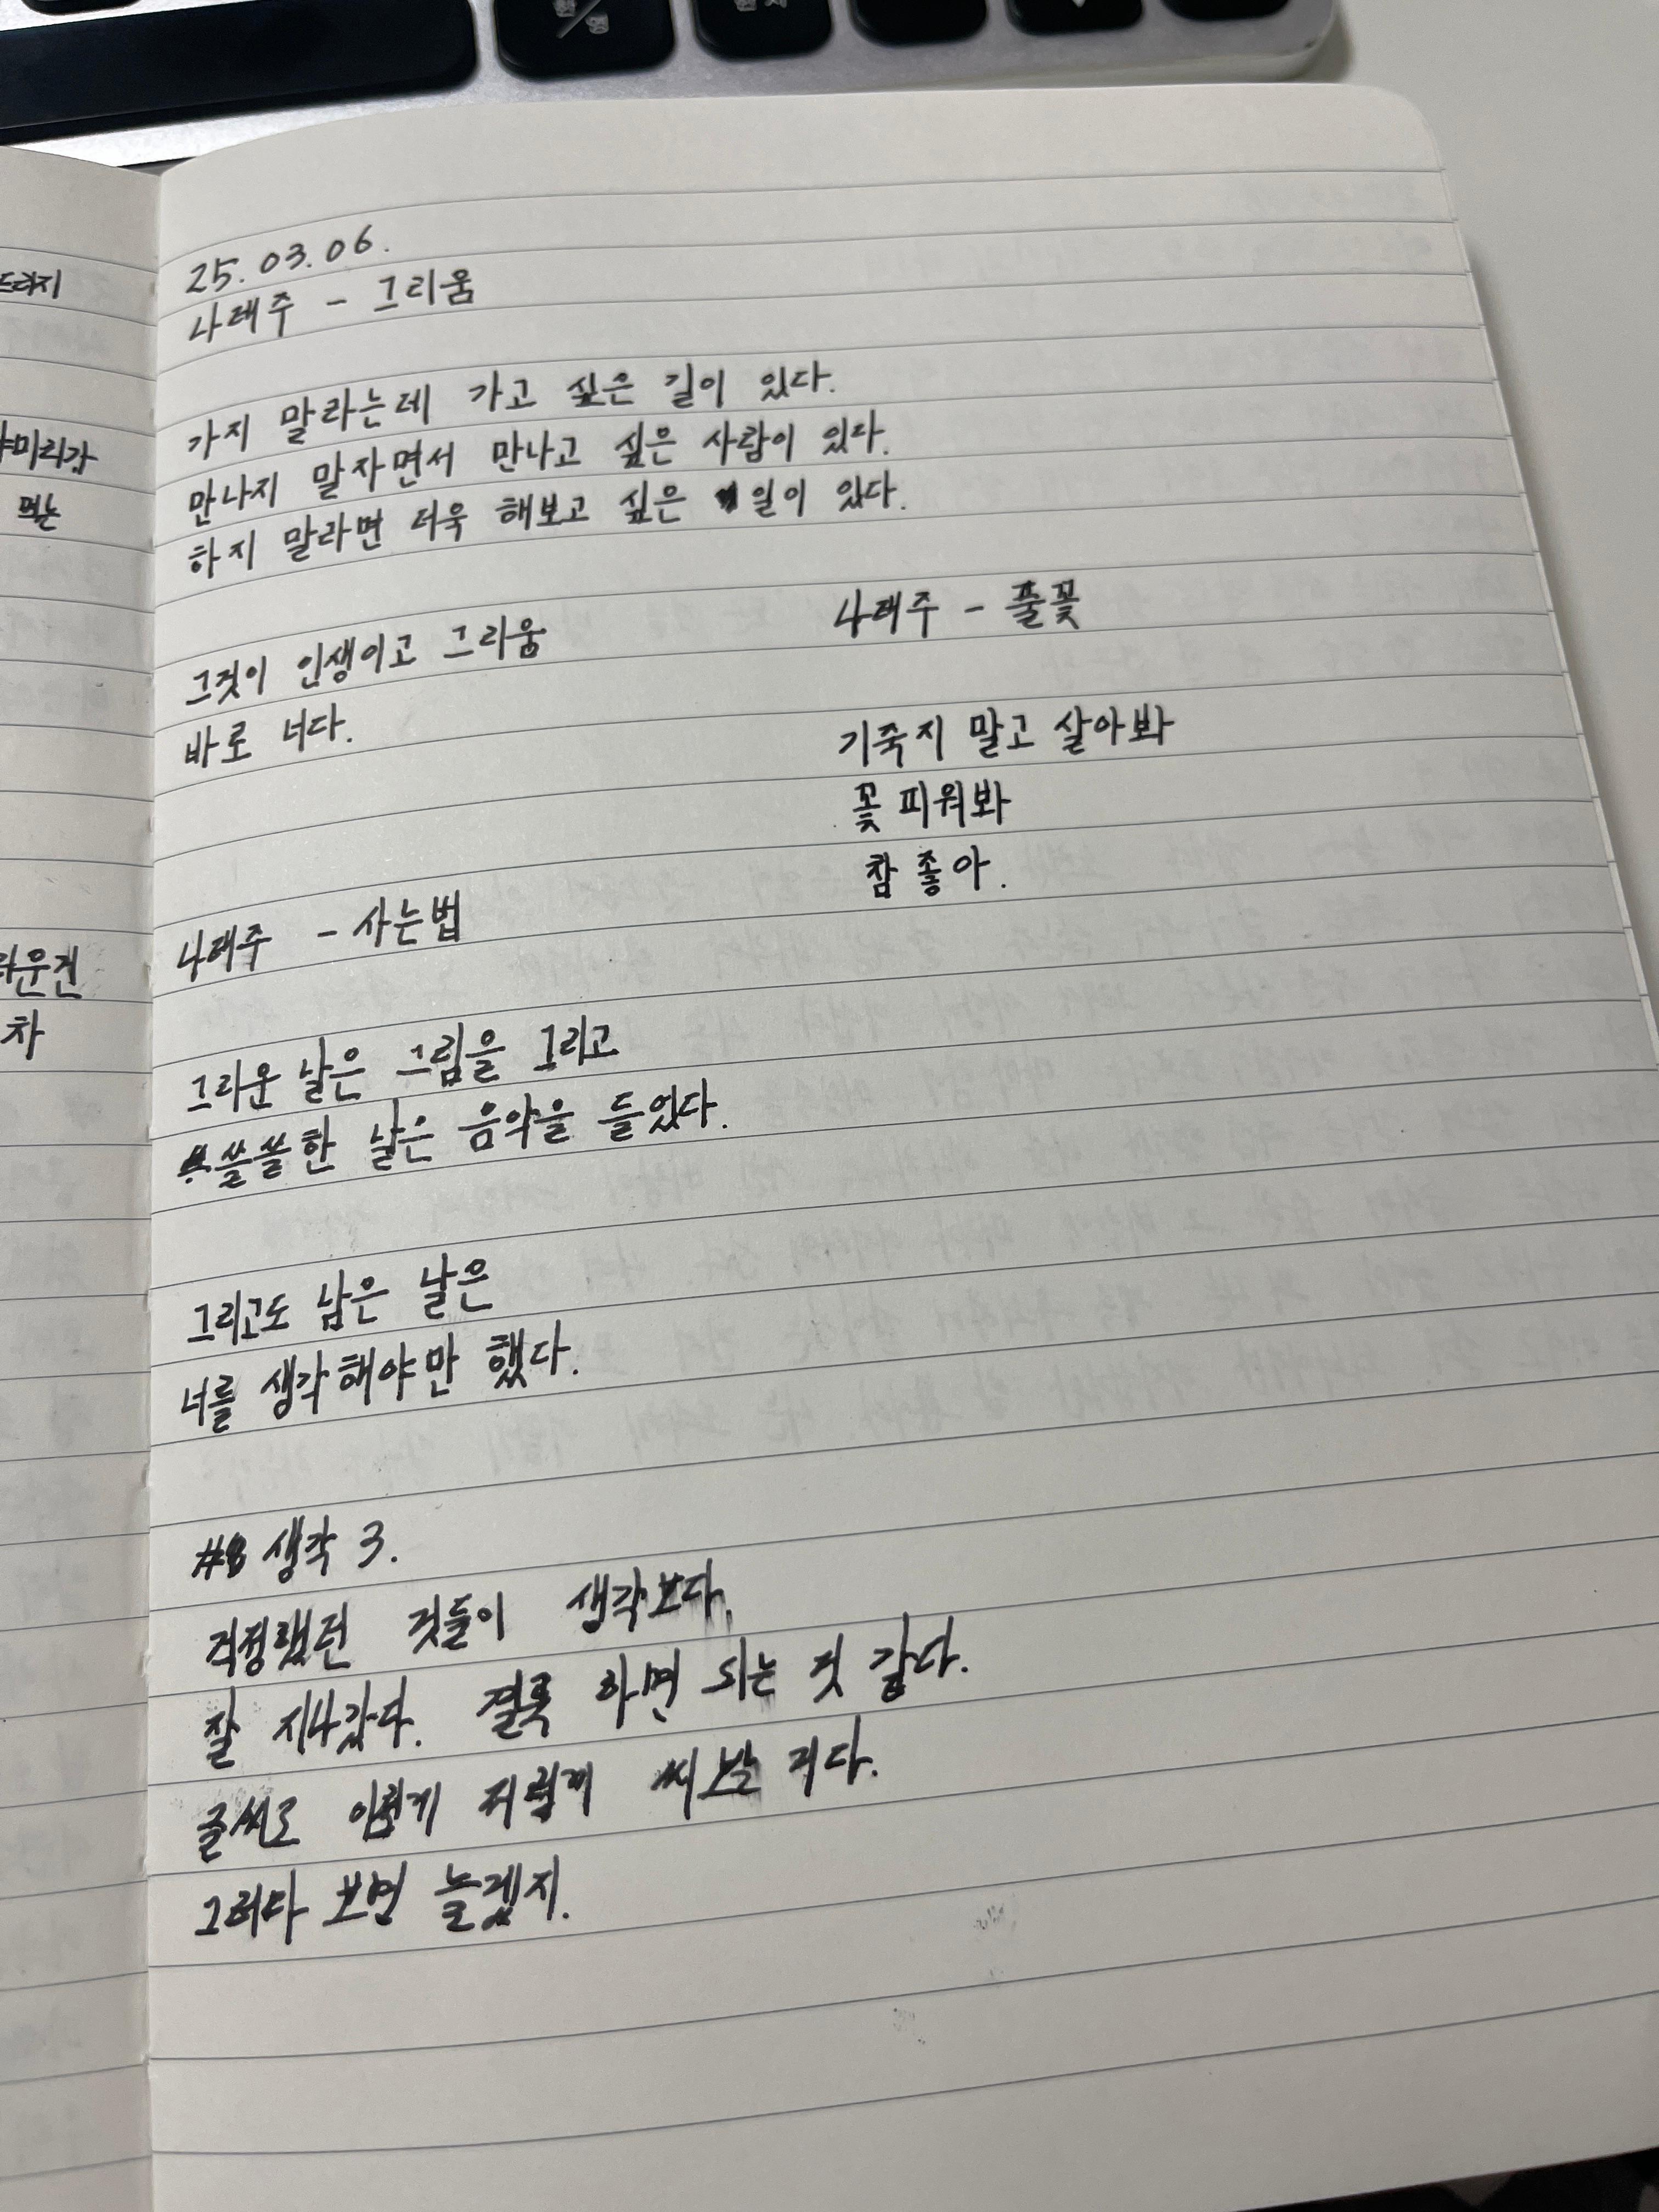 한/영
25.03.06.
나태주 - 그리움
가지 말라는데 가고 싶은 길이 있다.
만나지 말자면서 만나고 싶은 사람이 있다.
하지 말라면 더욱 해보고 싶은 일이 있다.
그것이 인생이고 그리움
바로 너다.
나태주 - 풀꽃
기죽지 말고 살아봐
꽃 피워봐
참 좋아.
나태주 - 사는법
그리운 날은 그림을 그리고
쓸쓸한 날은 음악을 들었다.
그리고도 남은 날은
너를 생각해야만 했다.
생각 3.
걱정했던 것들이 생각보다
잘 지나갔다. 결국 하면 되는 것 같다.
글씨도 이렇게 저렇게 써볼 거다.
그러다 보면 늘겠지.
먹는
차